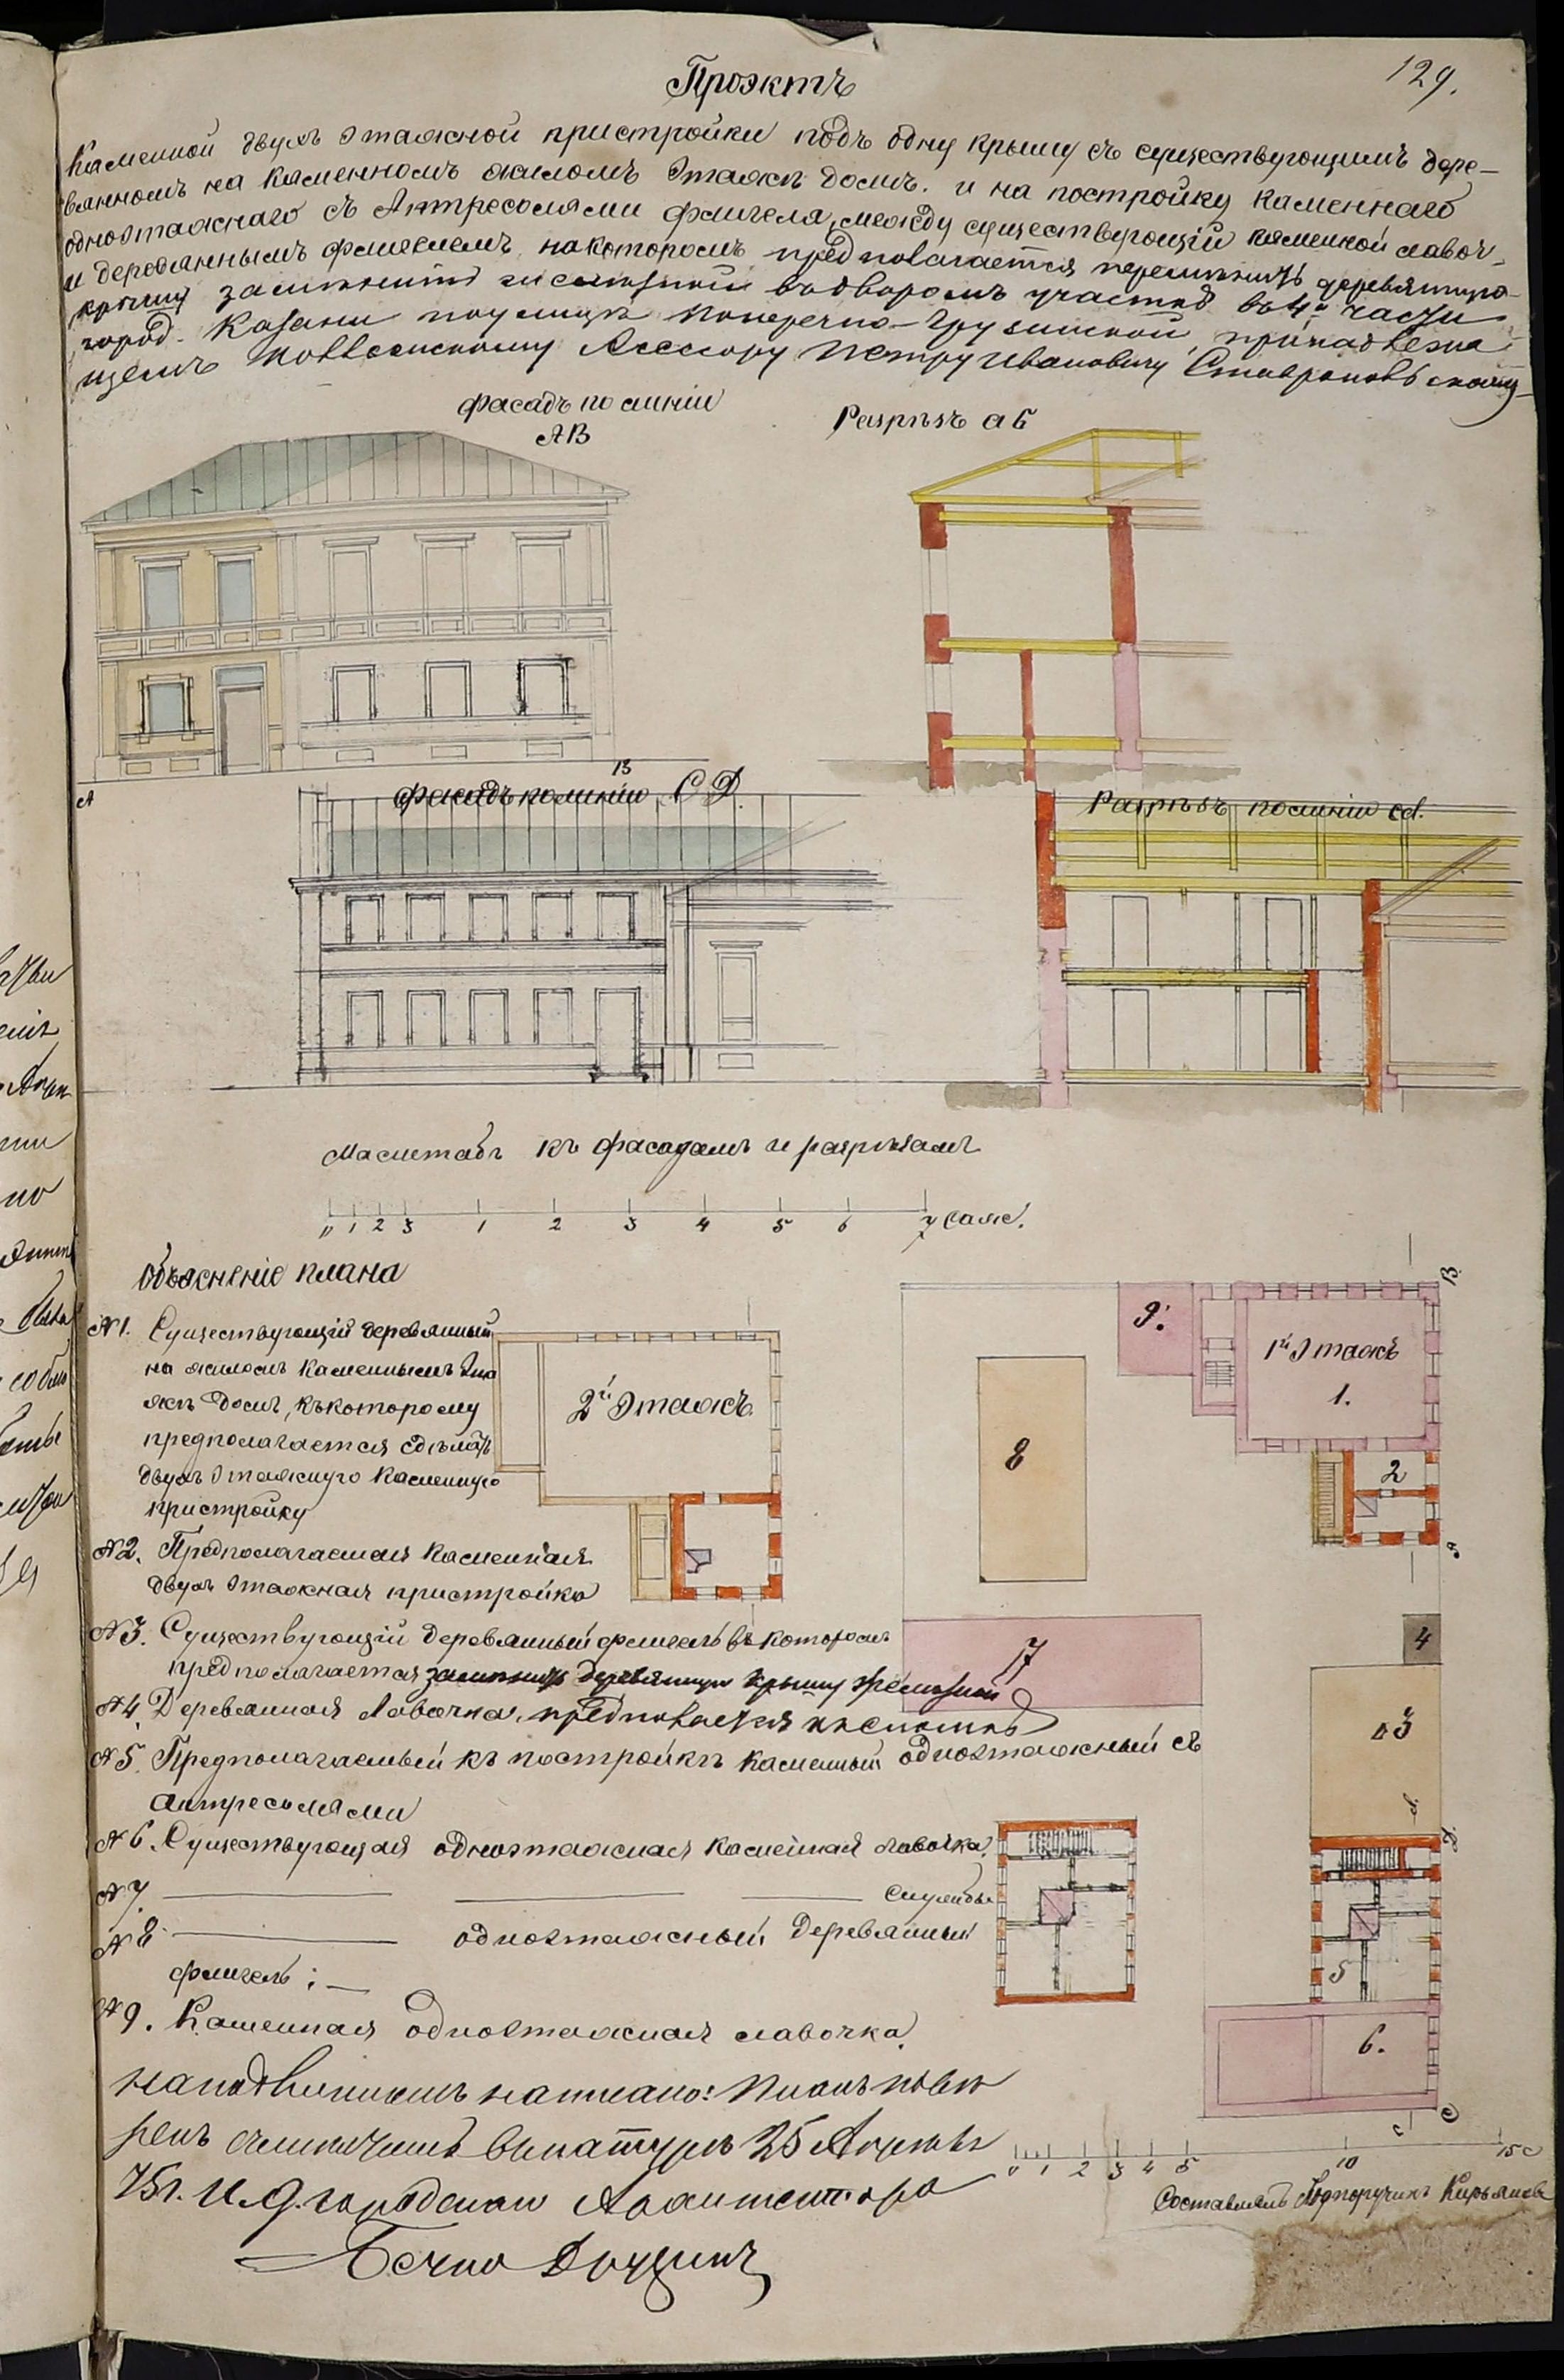 129.
Проэктъ
Каменной двухъ этажной пристройки подъ одну крышу съ существующимъ дере-
вянномъ на каменномъ жиломъ этажѣ домѣ. и на постройку каменнаго
одноэтажнаго съ Антресолями флигеля, между существующій каменной лавоч.
и деревяннымъ флигелемъ, на которомъ предполагается перемѣнить деревянную
крышу замѣнить желѣзной въ дворовомъ участкѣ въ 4й части
город. Казани по улицѣ Поперечно-Грузинской, принадлежа
щемъ Коллежскому Асессору Петру Ивановичу
фасадъ по линіи
АВ
Разрѣзъ аб
А
В
фасадъ по линіи СД
Разрѣзъ по линіи cd.
Масштабъ къ фасадамъ и разрѣзамъ
0 1 2 3 1 2 3 4 5 6 7 саж.
Объясненіе плана
№1. Существующій деревянный
на жиломъ каменнымъ эта
жѣ домъ, къ которому
предполагается сдѣлать
двухъ этажную каменную
пристройку
№2. Предполагаемая каменная
двухъ этажная пристройка
№3. Существующій деревянный флигель въ которомъ
предполагается замѣнить деревянную крышу желѣзной
№4. Деревянная Лавочка, предполагается къ сломкѣ
№5. Предполагаемый къ постройкѣ каменный одноэтажный съ
антресолями
№6. Существующая одноэтажная каменная лавочка.
№7. службы
№8 одноэтажный деревянный
флигель; —
№9. Каменная одноэтажная лавочка.
2й этажъ
9.
1й этажъ
1.
В
8
2
А
7
4
3
Д
5
6.
с
С
0 1 2 3 4 5 10 15 с
На подлинномъ написано: Планъ повѣ
ренъ съ натурѣ 25 Апрѣля
75 г. И. д. городскаго Архитектора
Составлялъ Подпоручикъ Кирьяновъ